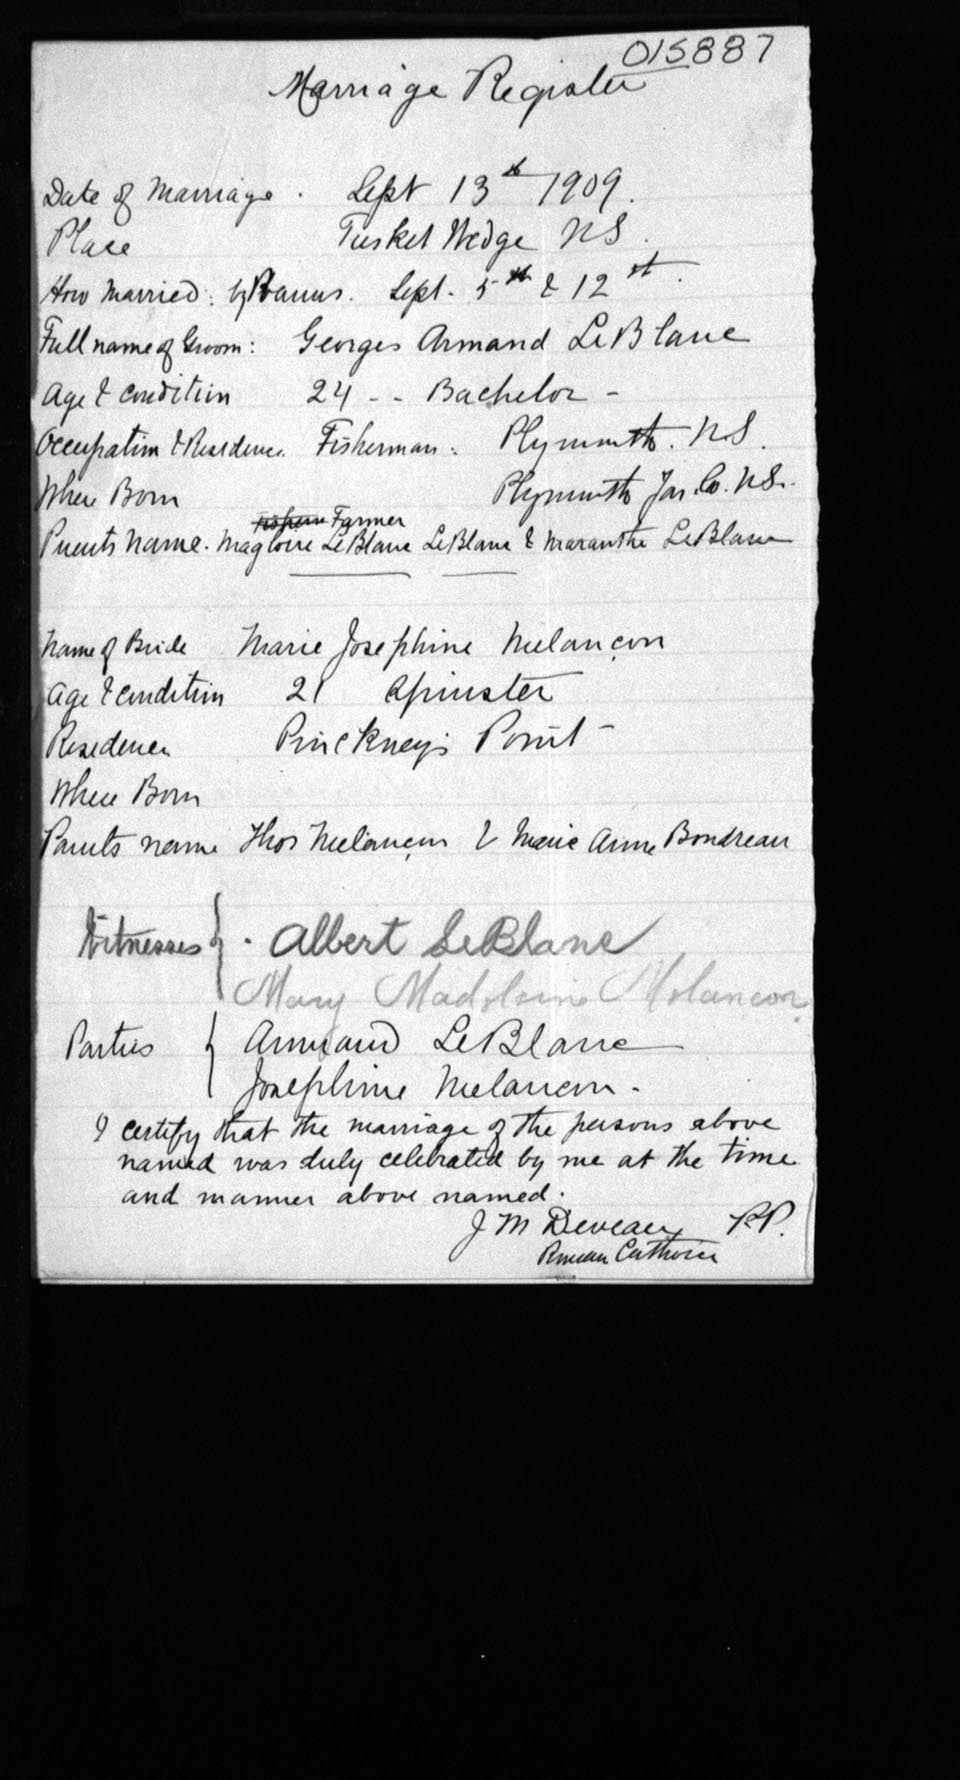 015887
Marriage Register
Date of Marriage. Sept 13th 1909.
Place Tusket Wedge NS.
How Married: by Banns. Sept. 5th & 12th.
Full name of Groom: Georges Armand LeBlanc
Age & condition 24 - - Bachelor -
Occupation & Residence Fisherman. Plymouth. NS.
Where Born Plymouth Yar. Co. NS.
Farmer
Parents Name. Magloire LeBlanc LeBlanc & Maranthe LeBlanc
Name of Bride Marie Josephine Melançon
Age & condition 21 Spinster
Residence Pinckney's Point -
Where Born
Parents name Thos Melançon & Marie Anne Boudreau
Witnesses { . Albert LeBlanc
Mary Madeleine Melancon
Parties { Armand LeBlanc
Josephine Melancon.
I certify that the marriage of the persons above
named was duly celebrated by me at the time
and manner above named.
J M Deveau P.P.
Roman Catholic